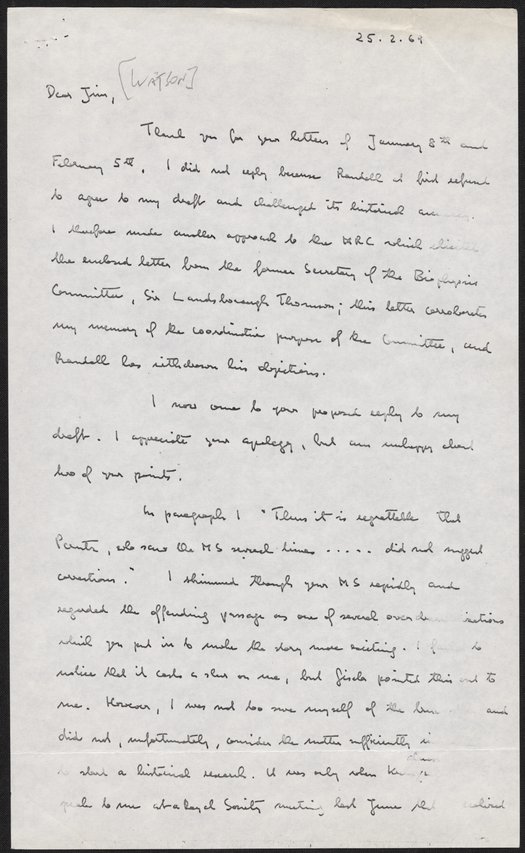 25.2.69
Dear Jim, [WATSON]
Thank you for your letters of January 8th and
February 5th. I did not reply because Randall at first refused
to agree to my draft and challenged its historical
I therefore made another approach to the MRC which
the enclosed letter from the former Secretary of the Biophysics
Committee, Sir Landsborough Thomson; this letter corroborates
my memory of the coordinative purpose of the Committee, and
Randall has withdrawn his objections.
I now come to your proposed reply to my
draft. I appreciate your apology, but am unhappy about
two of your points.
In paragraph 1 "Thus it is regrettable that
Perutz, who saw the MS several times ..... did not suggest
corrections." I skimmed through your MS rapidly and
regarded the offending passage as one of several
which you put in to make the story more exciting. I to
notice that it casts a slur on me, but Gisela pointed this out to
me. However, I was not too sure myself of the and
did not, unfortunately, consider the matter sufficiently
to start a historical research. It was only when
spoke to me at a Royal Society meeting last June